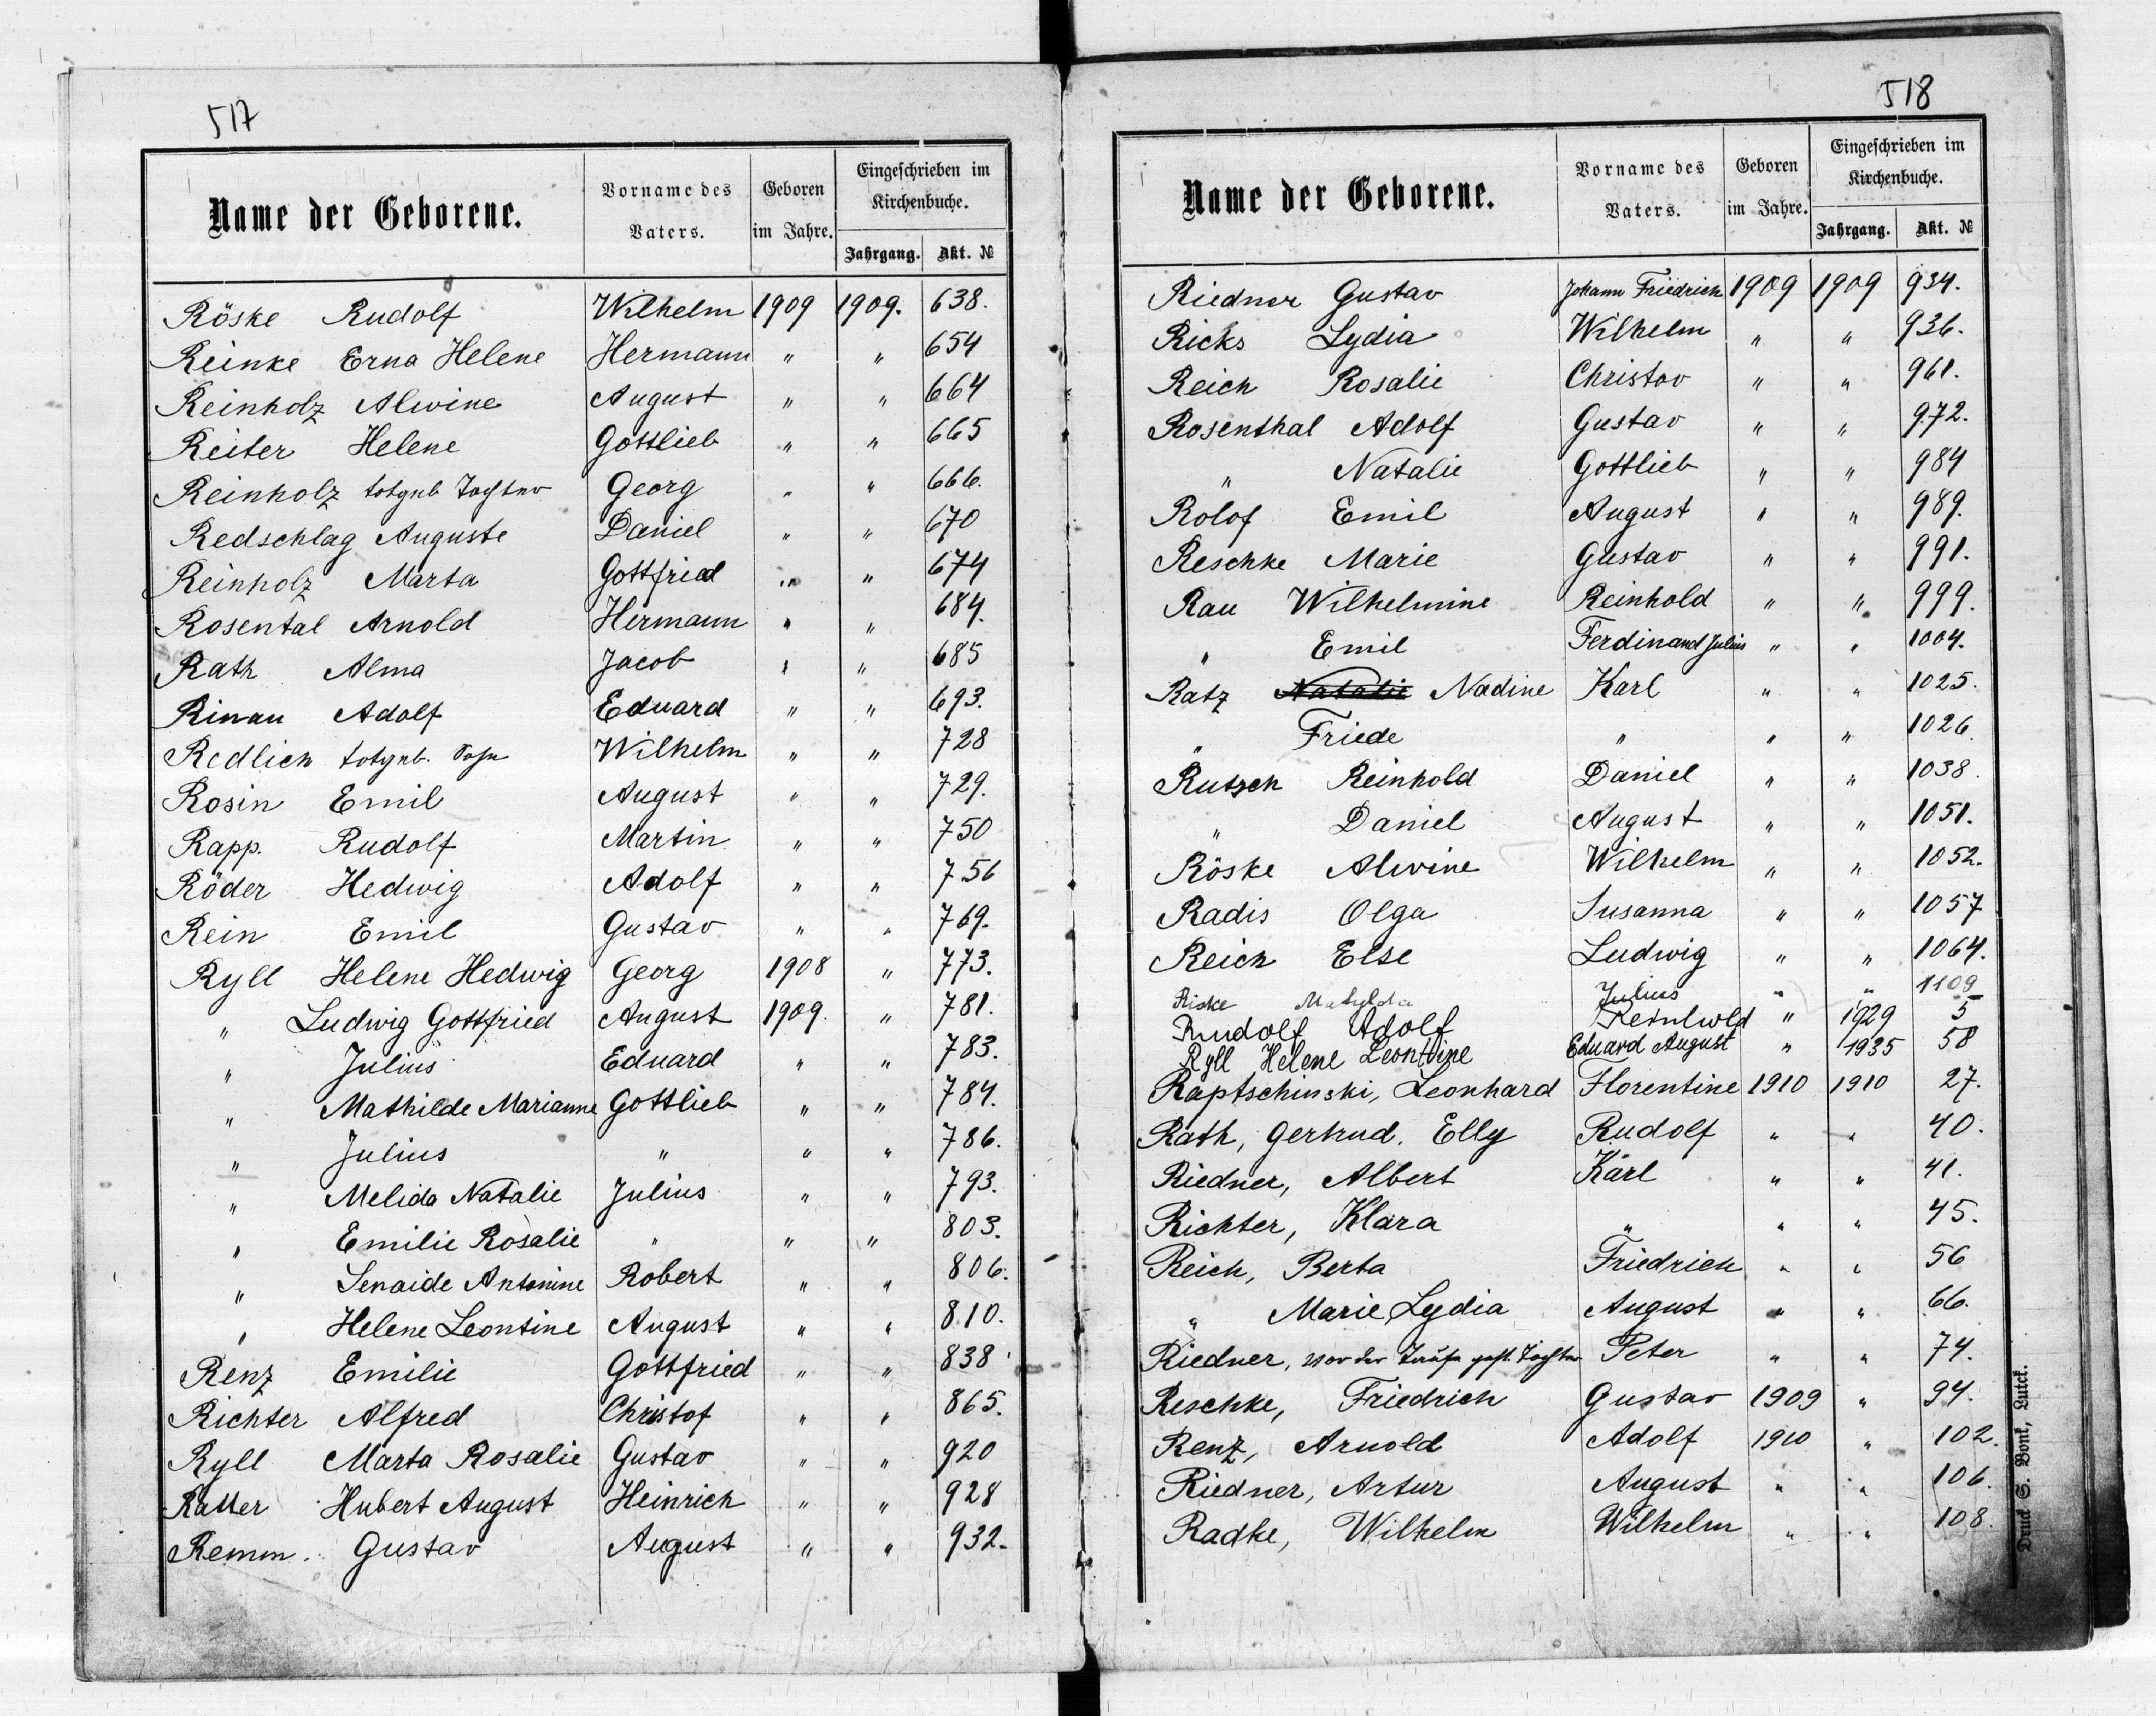 517
Name der Geborene. Vorname des Vaters. Geboren im Jahre. Eingeschrieben im Kirchenbuche.
Jahrgang. Akt. №
Röske Rudolf Wilhelm 1909 1909. 638.
Reinke Erna Helene Hermann " " 654
Reinholz Alwine August " " 664
Reiter Helene Gottlieb " " 665
Reinholz totgeb Tochter Georg " " 666.
Redschlag Auguste Daniel " " 670
Reinholz Marta Gottfried " " 674
Rosental Arnold Hermann " " 684.
Rath Alma Jacob " " 685
Rinau Adolf Eduard " " 693.
Redlich totgeb. Sohn Wilhelm " " 728
Rosin Emil August " " 729.
Rapp. Rudolf Martin " " 750
Röder Hedwig Adolf " " 756
Rein Emil Gustav " " 769.
Ryll Helene Hedwig Georg 1908 " 773.
" Ludwig Gottfried August 1909. " 781.
" Julius Eduard " " 783.
" Mathilde Marianne Gottlieb " " 784.
" Julius " " " 786.
" Melida Natalie Julius " " 793.
" Emilie Rosalie " " " 803.
" Senaide Antonine Robert " " 806.
" Helene Leontine August " " 810.
Renz Emilie Gottfried " " 838
Richter Alfred Christof " " 865.
Ryll Marta Rosalie Gustav " " 920
Ratter Hubert August Heinrich " " 928
Remm. Gustav August " " 932.
518
Name der Geborene. Vorname des Vaters. Geboren im Jahre. Eingeschrieben im Kirchenbuche.
Jahrgang. Akt. №
Riedner Gustav Johann Friedrich 1909 1909 934.
Ricks Lydia Wilhelm " " 936.
Reich Rosalie Christov " " 961.
Rosenthal Adolf Gustav " " 972.
" Natalie Gottlieb " " 984
Rolof Emil August " " 989.
Reschke Marie Gustav " " 991.
Rau Wilhelmine Reinhold " " 999.
" Emil Ferdinand Julius " " 1004.
Ratz Natalie Nadine Karl " " 1025.
" Friede " " " 1026.
Rutsch Reinhold Daniel " " 1038.
" Daniel August " " 1051.
Röske Alwine Wilhelm " " 1052.
Radis Olga Susanna " " 1057
Reich Else Ludwig " " 1064.
Riske Matylda Julius " " 1109
Rudolf Adolf Reinhold " 1929 5
Ryll Helene Leontine Eduard August " 1935 58
Raptschinski, Leonhard Florentine 1910 1910 27.
Rath, Gertrud. Elly Rudolf " " 40.
Riedner, Albert Karl " " 41.
Richter, Klara " " " 45.
Reich, Berta Friedrich " " 56
" Marie Lydia August " " 66.
Riedner, vor der Taufe gest. Tochter Peter " " 74.
Reschke, Friedrich Gustav 1909 " 94.
Renz, Arnold Adolf 1910 " 102.
Riedner, Artur August " " 106.
Radke, Wilhelm Wilhelm " " 108.
Druck S. Bonk, Lutck.